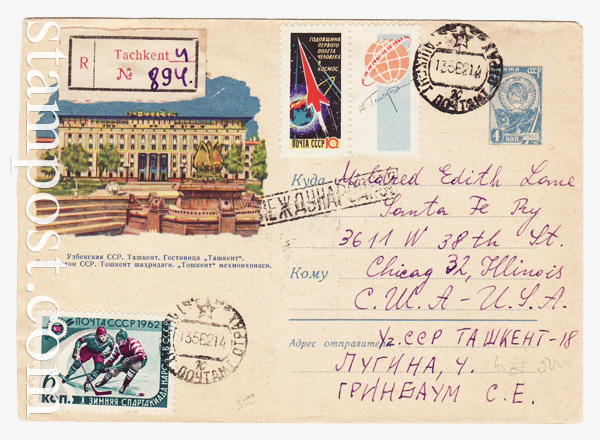 Tachkent 4
R № 894.
ГОДОВЩИНА
ПЕРВОГО
ПОЛЕТА
ЧЕЛОВЕКА
В
КОСМОС
ПОЧТА СССР 10
ПОЧТАМТ
1356214
ПОЧТА
4
КОП.
МЕЖДУНАРОДНОЕ
Куда Mildred Edith Lane
Santa Fe Ry
3611 W 38th St.
Кому Chicag 32, Illinois
С.Ш.А - U.S.A.
Адрес отправителя Уz. ССР ТАШКЕНТ-18
ЛУГИНА, 4.
ГРИНБАУМ С.Е.
Узбекская ССР. Ташкент. Гостиница „Ташкент".
тон ССР. Тошкент шахридаги. „Тошкент" мехмонхонаси.
ПОЧТА СССР 1962
6
КОП.
I ЗИМНЯЯ СПАРТАКИАДА НАРОДОВ СССР
1356214
ПОЧТАМТ
stampost.com